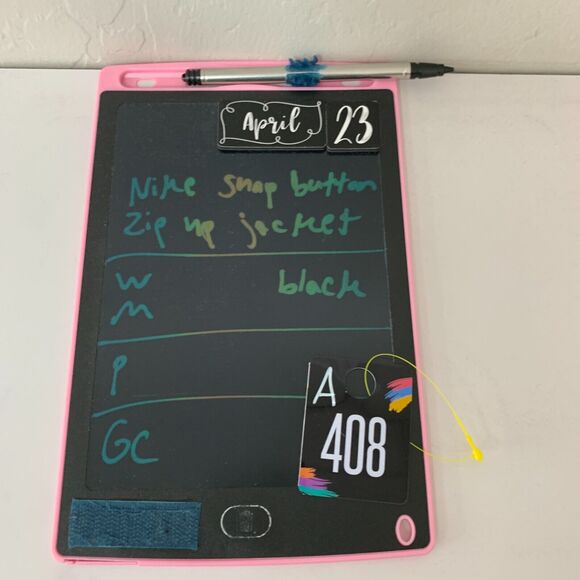 April 23
Nike snap button
Zip up jacket
W black
M
P
GC
A
408